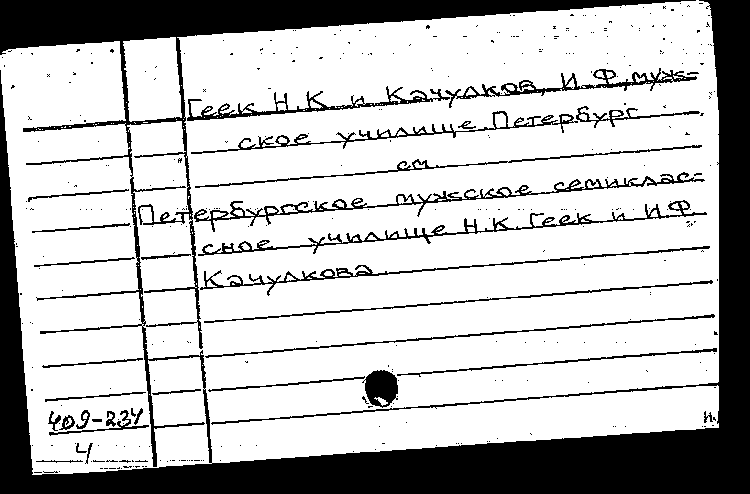 Геек Н.К. и Качулков, И.Ф., муж=
ское училище. Петербург
см.
Петербургское мужское семиклас=
сное училище Н.К. Геек и И.Ф.
Качулкова.
409-234
4
н.